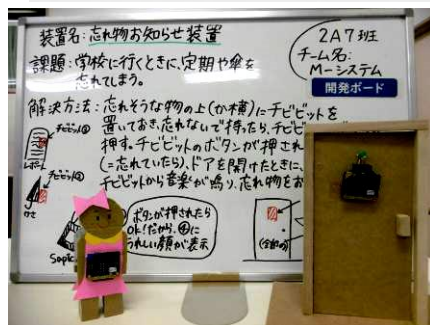 装置名:忘れ物お知らせ装置
2A7班
チーム名:
M-システム
開発ボード
課題:学校に行くときに、定期や傘を
忘れてしまう。
解決方法:忘れそうな物の上(か横)にチビビットを
置いておき、忘れないで持ったら、チビビ
押す。チビビットのボタンが押され
(=忘れていたら)、ドアを開けたときに、
チビビットから音楽が鳴り、忘れ物をお
チビビット
レポート
チビビット
かさ
ボタンが押されたら
OK!だから、④に
うれしい顔が表示
Sapic
(玄関の)